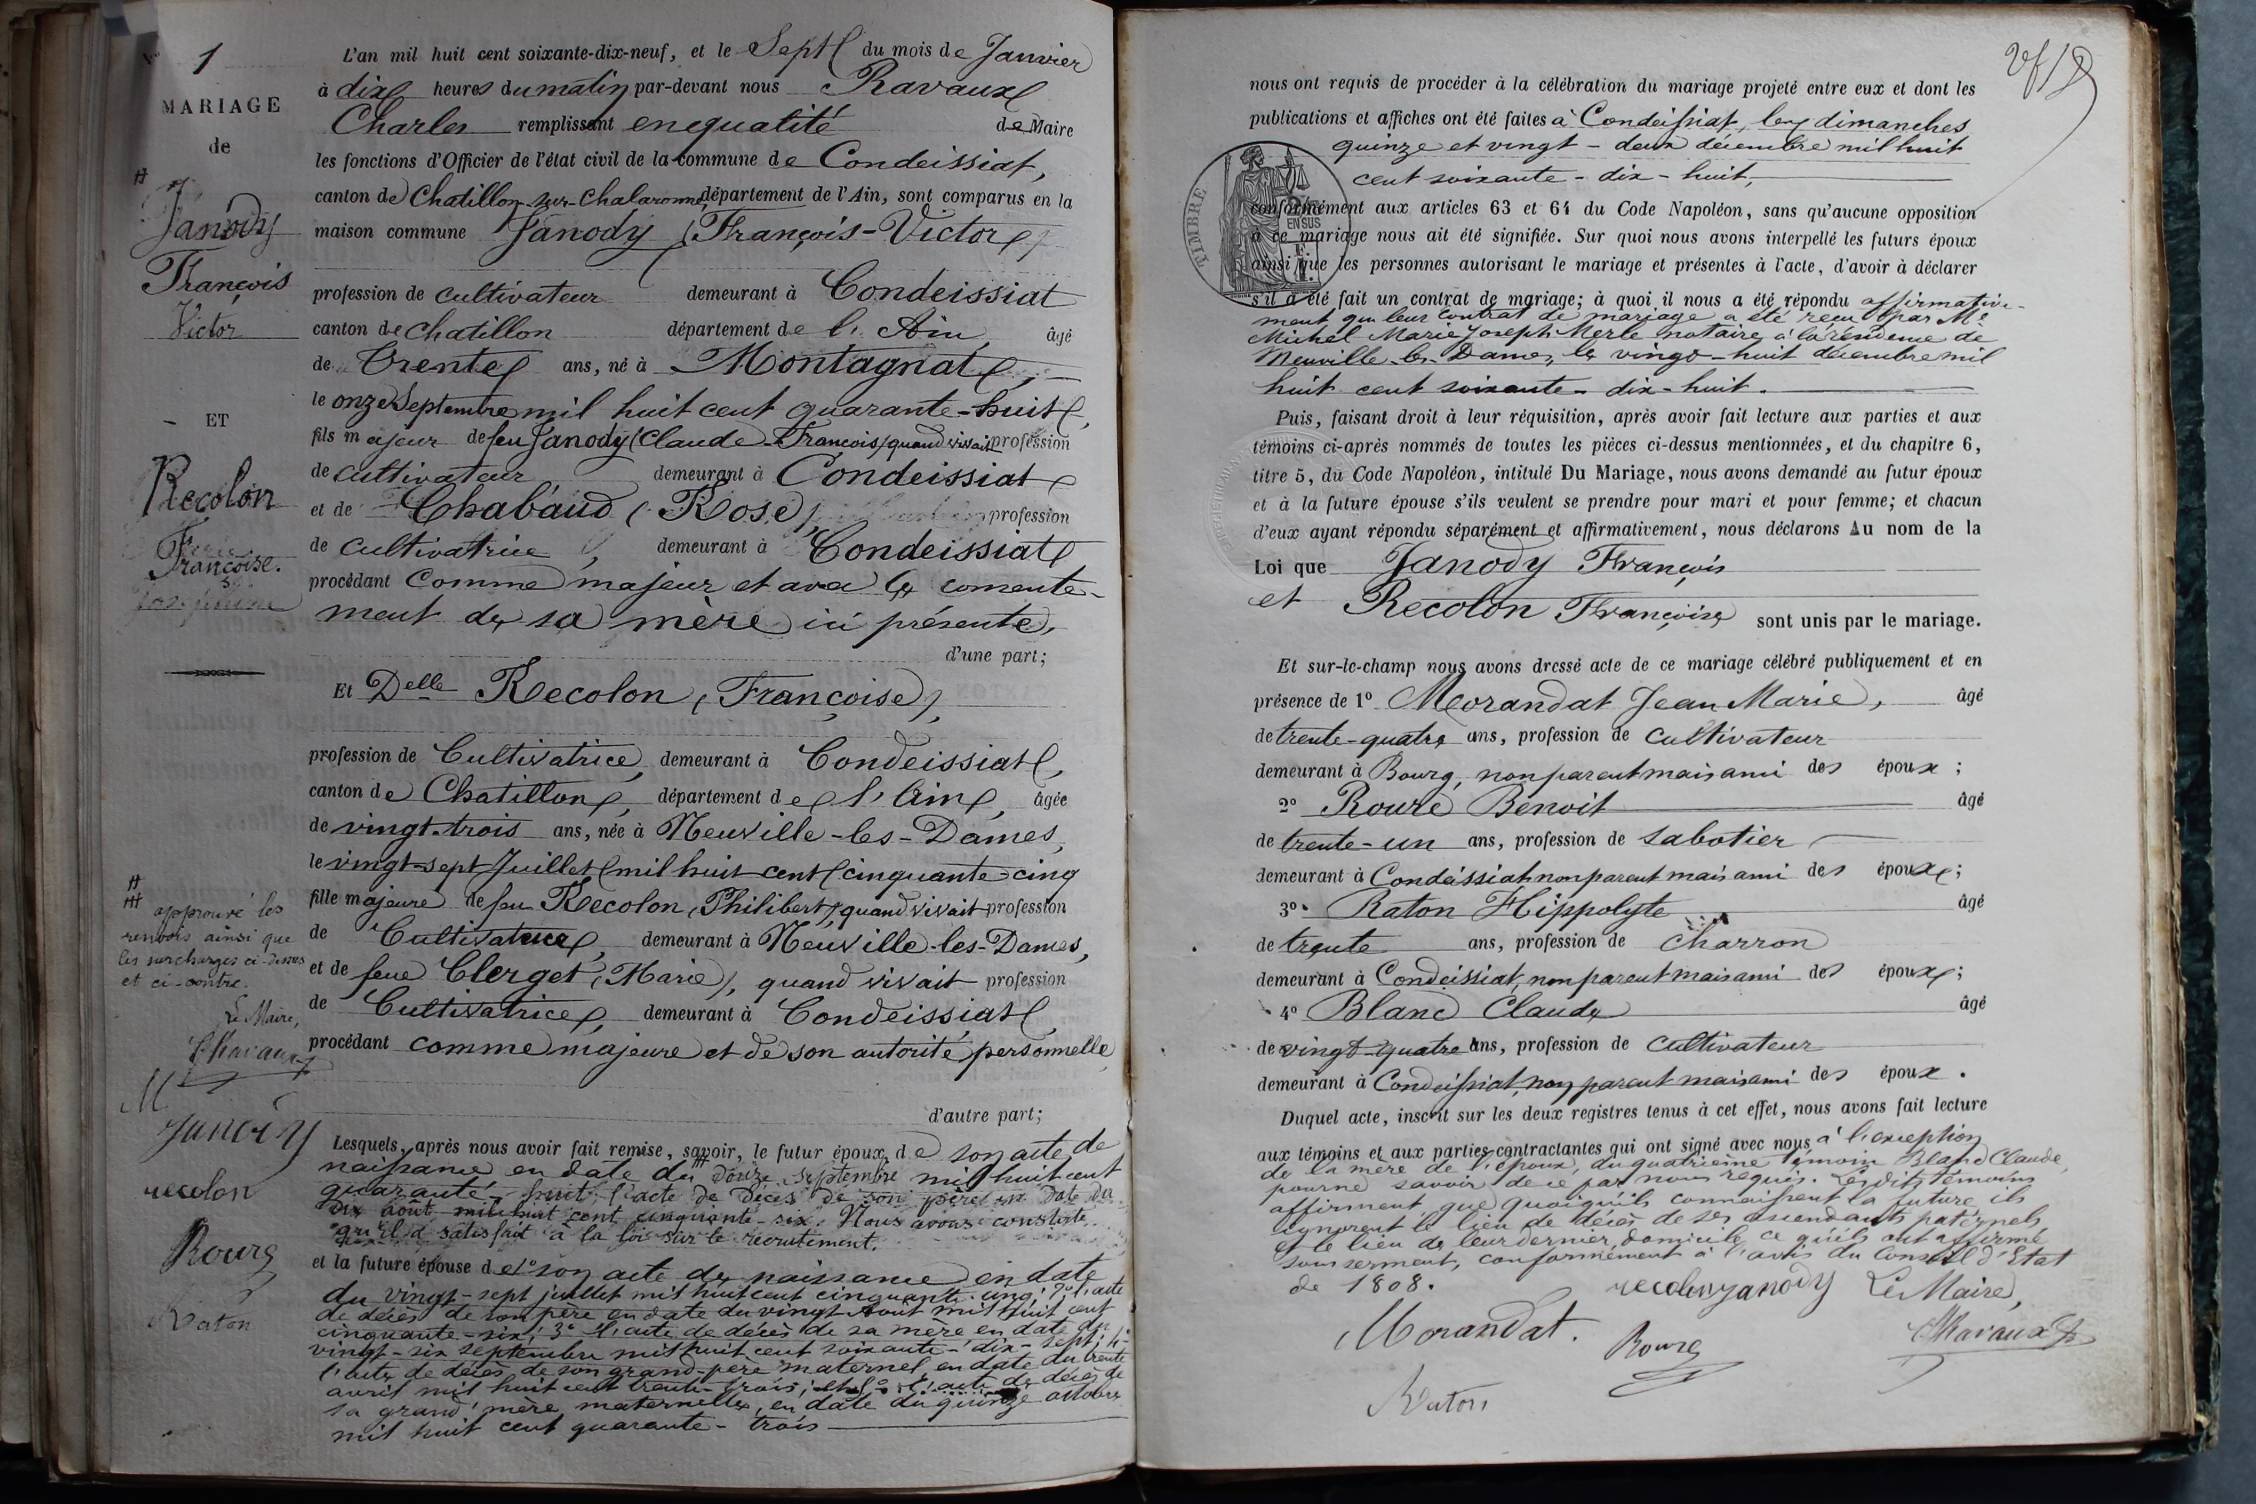 1
MARIAGE
de
Janody
François
Victor
ET
Recolon
Françoise.
approuvé les
renvois ainsi que
les surcharges ci-dessus
et ci-contre.
Le Maire,
Ravaux
M
Janody
recolon
Roure
Raton
L'an mil huit cent soixante-dix-neuf, et le Sept du mois de Janvier
à dix heures du matin par-devant nous Ravaux
Charles remplissant en qualité de Maire
les fonctions d'Officier de l'état civil de la commune de Condeissiat,
canton de Chatillon-sur-Chalaronne, département de l'Ain, sont comparus en la
maison commune Janody (François-Victor)
profession de cultivateur demeurant à Condeissiat
canton de Chatillon département de l'Ain âgé
de Trente ans, né à Montagnat,
le onze Septembre mil huit cent quarante-huit,
fils majeur de feu Janody (Claude-François) quand vivait profession
de cultivateur demeurant à Condeissiat
et de Chabaud (Rose), profession
de cultivatrice demeurant à Condeissiat
procédant comme majeur et avec le consente-
ment de sa mère ici présente,
d'une part;
Et Delle Recolon (Françoise),
profession de Cultivatrice, demeurant à Condeissiat,
canton de Chatillon, département de l'Ain, âgée
de vingt-trois ans, née à Neuville-les-Dames,
le vingt-sept Juillet mil huit cent cinquante-cinq
fille majeure de feu Recolon (Philibert), quand vivait profession
de Cultivateur, demeurant à Neuville-les-Dames,
et de feue Clerget (Marie), quand vivait profession
de Cultivatrice, demeurant à Condeissiat,
procédant comme majeure et de son autorité personnelle
d'autre part;
Lesquels, après nous avoir fait remise, savoir, le futur époux, de son acte de
naissance en date du douze Septembre mil huit cent
quarante-huit, l'acte de décès de son père en date du
dix août mil huit cent cinquante-six. Nous avons constaté
qu'il a satisfait à la loi sur le recrutement.
et la future épouse de 1° son acte de naissance en date
du vingt-sept juillet mil huit cent cinquante-cinq; 2° l'acte
de décès de son père en date du vingt Août mil huit cent
cinquante-six; 3° l'acte de décès de sa mère en date du
vingt-six septembre mil huit cent soixante-dix-sept; 4°
l'acte de décès de son grand-père maternel en date du trente
avril mil huit cent trente-trois; et 5° l'acte de décès de
sa grand'mère maternelle, en date du quinze octobre
mil huit cent quarante-trois
nous ont requis de procéder à la célébration du mariage projeté entre eux et dont les
publications et affiches ont été faites à Condeissiat, les dimanches
quinze et vingt-deux décembre mil huit
cent soixante-dix-huit,
TIMBRE
conformément aux articles 63 et 64 du Code Napoléon, sans qu'aucune opposition
à ce mariage nous ait été signifiée. Sur quoi nous avons interpellé les futurs époux
ainsi que les personnes autorisant le mariage et présentes à l'acte, d'avoir à déclarer
s'il a été fait un contrat de mariage; à quoi il nous a été répondu affirmative-
ment que leur contrat de mariage a été reçu par Me
Michel Marie Joseph Merle notaire à la résidence de
Neuville-les-Dames, le vingt-huit décembre mil
huit cent soixante-dix-huit.
Puis, faisant droit à leur réquisition, après avoir fait lecture aux parties et aux
témoins ci-après nommés de toutes les pièces ci-dessus mentionnées, et du chapitre 6,
titre 5, du Code Napoléon, intitulé Du Mariage, nous avons demandé au futur époux
et à la future épouse s'ils veulent se prendre pour mari et pour femme; et chacun
d'eux ayant répondu séparément et affirmativement, nous déclarons Au nom de la
Loi que Janody François
et Recolon Françoise sont unis par le mariage.
Et sur-le-champ nous avons dressé acte de ce mariage célébré publiquement et en
présence de 1° Morandat Jean Marie, âgé
de trente-quatre ans, profession de cultivateur
demeurant à Bourg, non parent mais ami des époux;
2° Roure Benoit âgé
de trente-un ans, profession de sabotier
demeurant à Condeissiat non parent mais ami des époux;
3° Raton Hippolyte âgé
de trente ans, profession de charron
demeurant à Condeissiat, non parent mais ami des époux;
4° Blanc Claude âgé
de vingt-quatre ans, profession de cultivateur
demeurant à Condeissiat, non parent mais ami des époux.
Duquel acte, inscrit sur les deux registres tenus à cet effet, nous avons fait lecture
aux témoins et aux parties contractantes qui ont signé avec nous à l'exception
de la mère de l'époux, du quatrième témoin Blanc Claude,
pour ne savoir de ce par nous requis. Lesdits témoins
affirment que quoiqu'ils connaissent la future ils
ignorent le lieu de décès de ses ascendants paternels
et le lieu de leur dernier domicile ce qu'ils ont affirmé
sous serment, conformément à l'avis du Conseil d'Etat
de 1808.
recolon janody Le Maire,
Morandat. Roure Ravaux
Raton